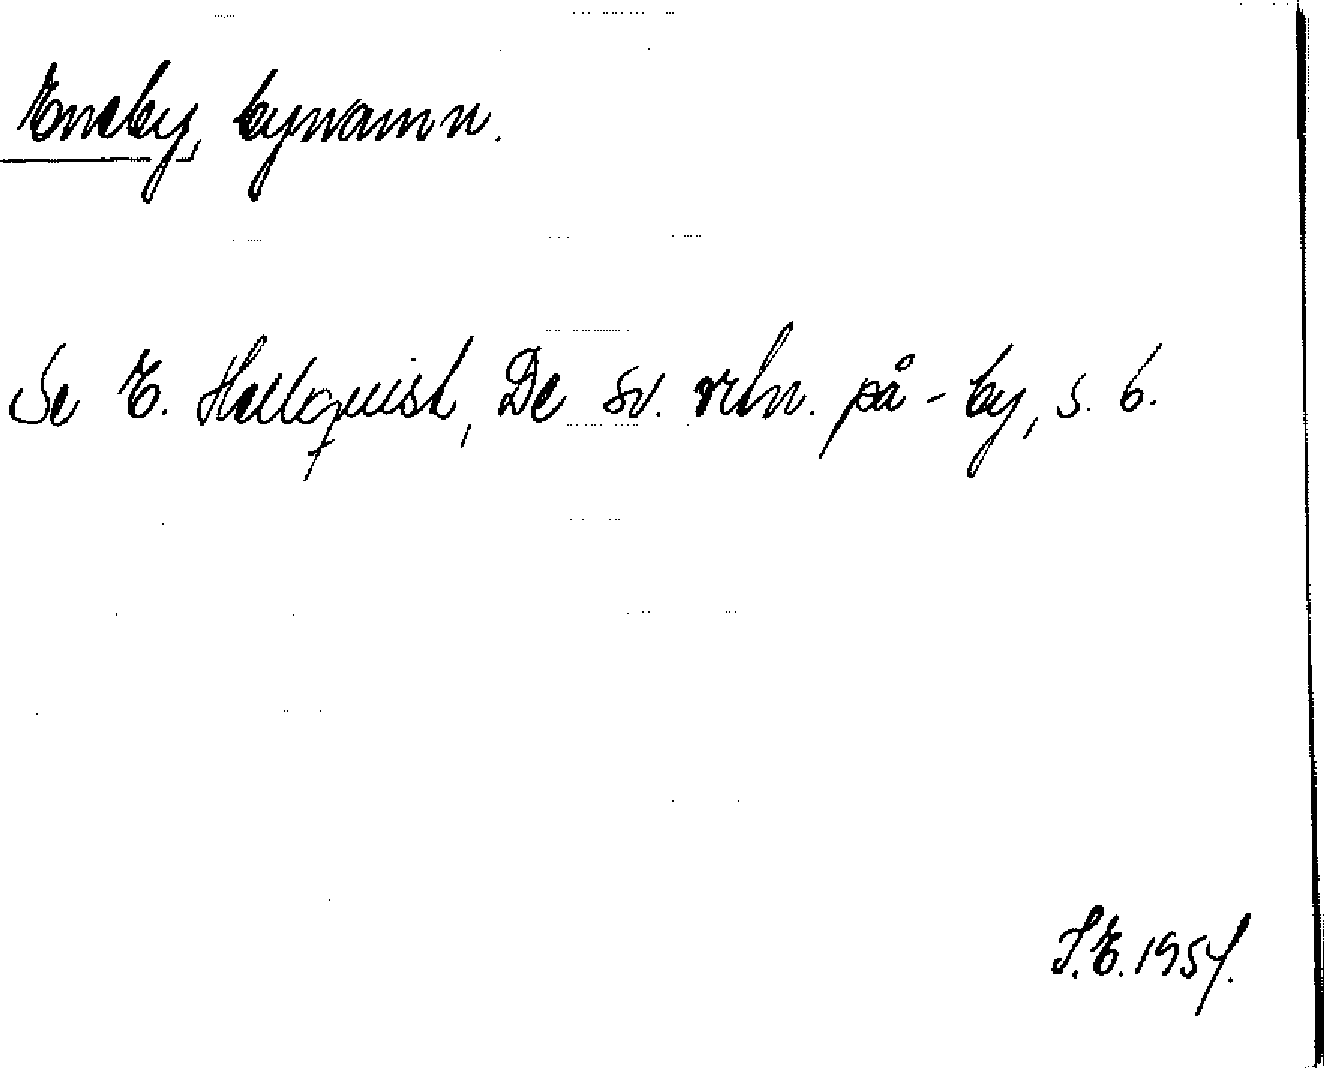 Eneby, bynamn.
Se E. Hellquist, De sv. rtn. på -by, s. 6.
S.E. 1954.